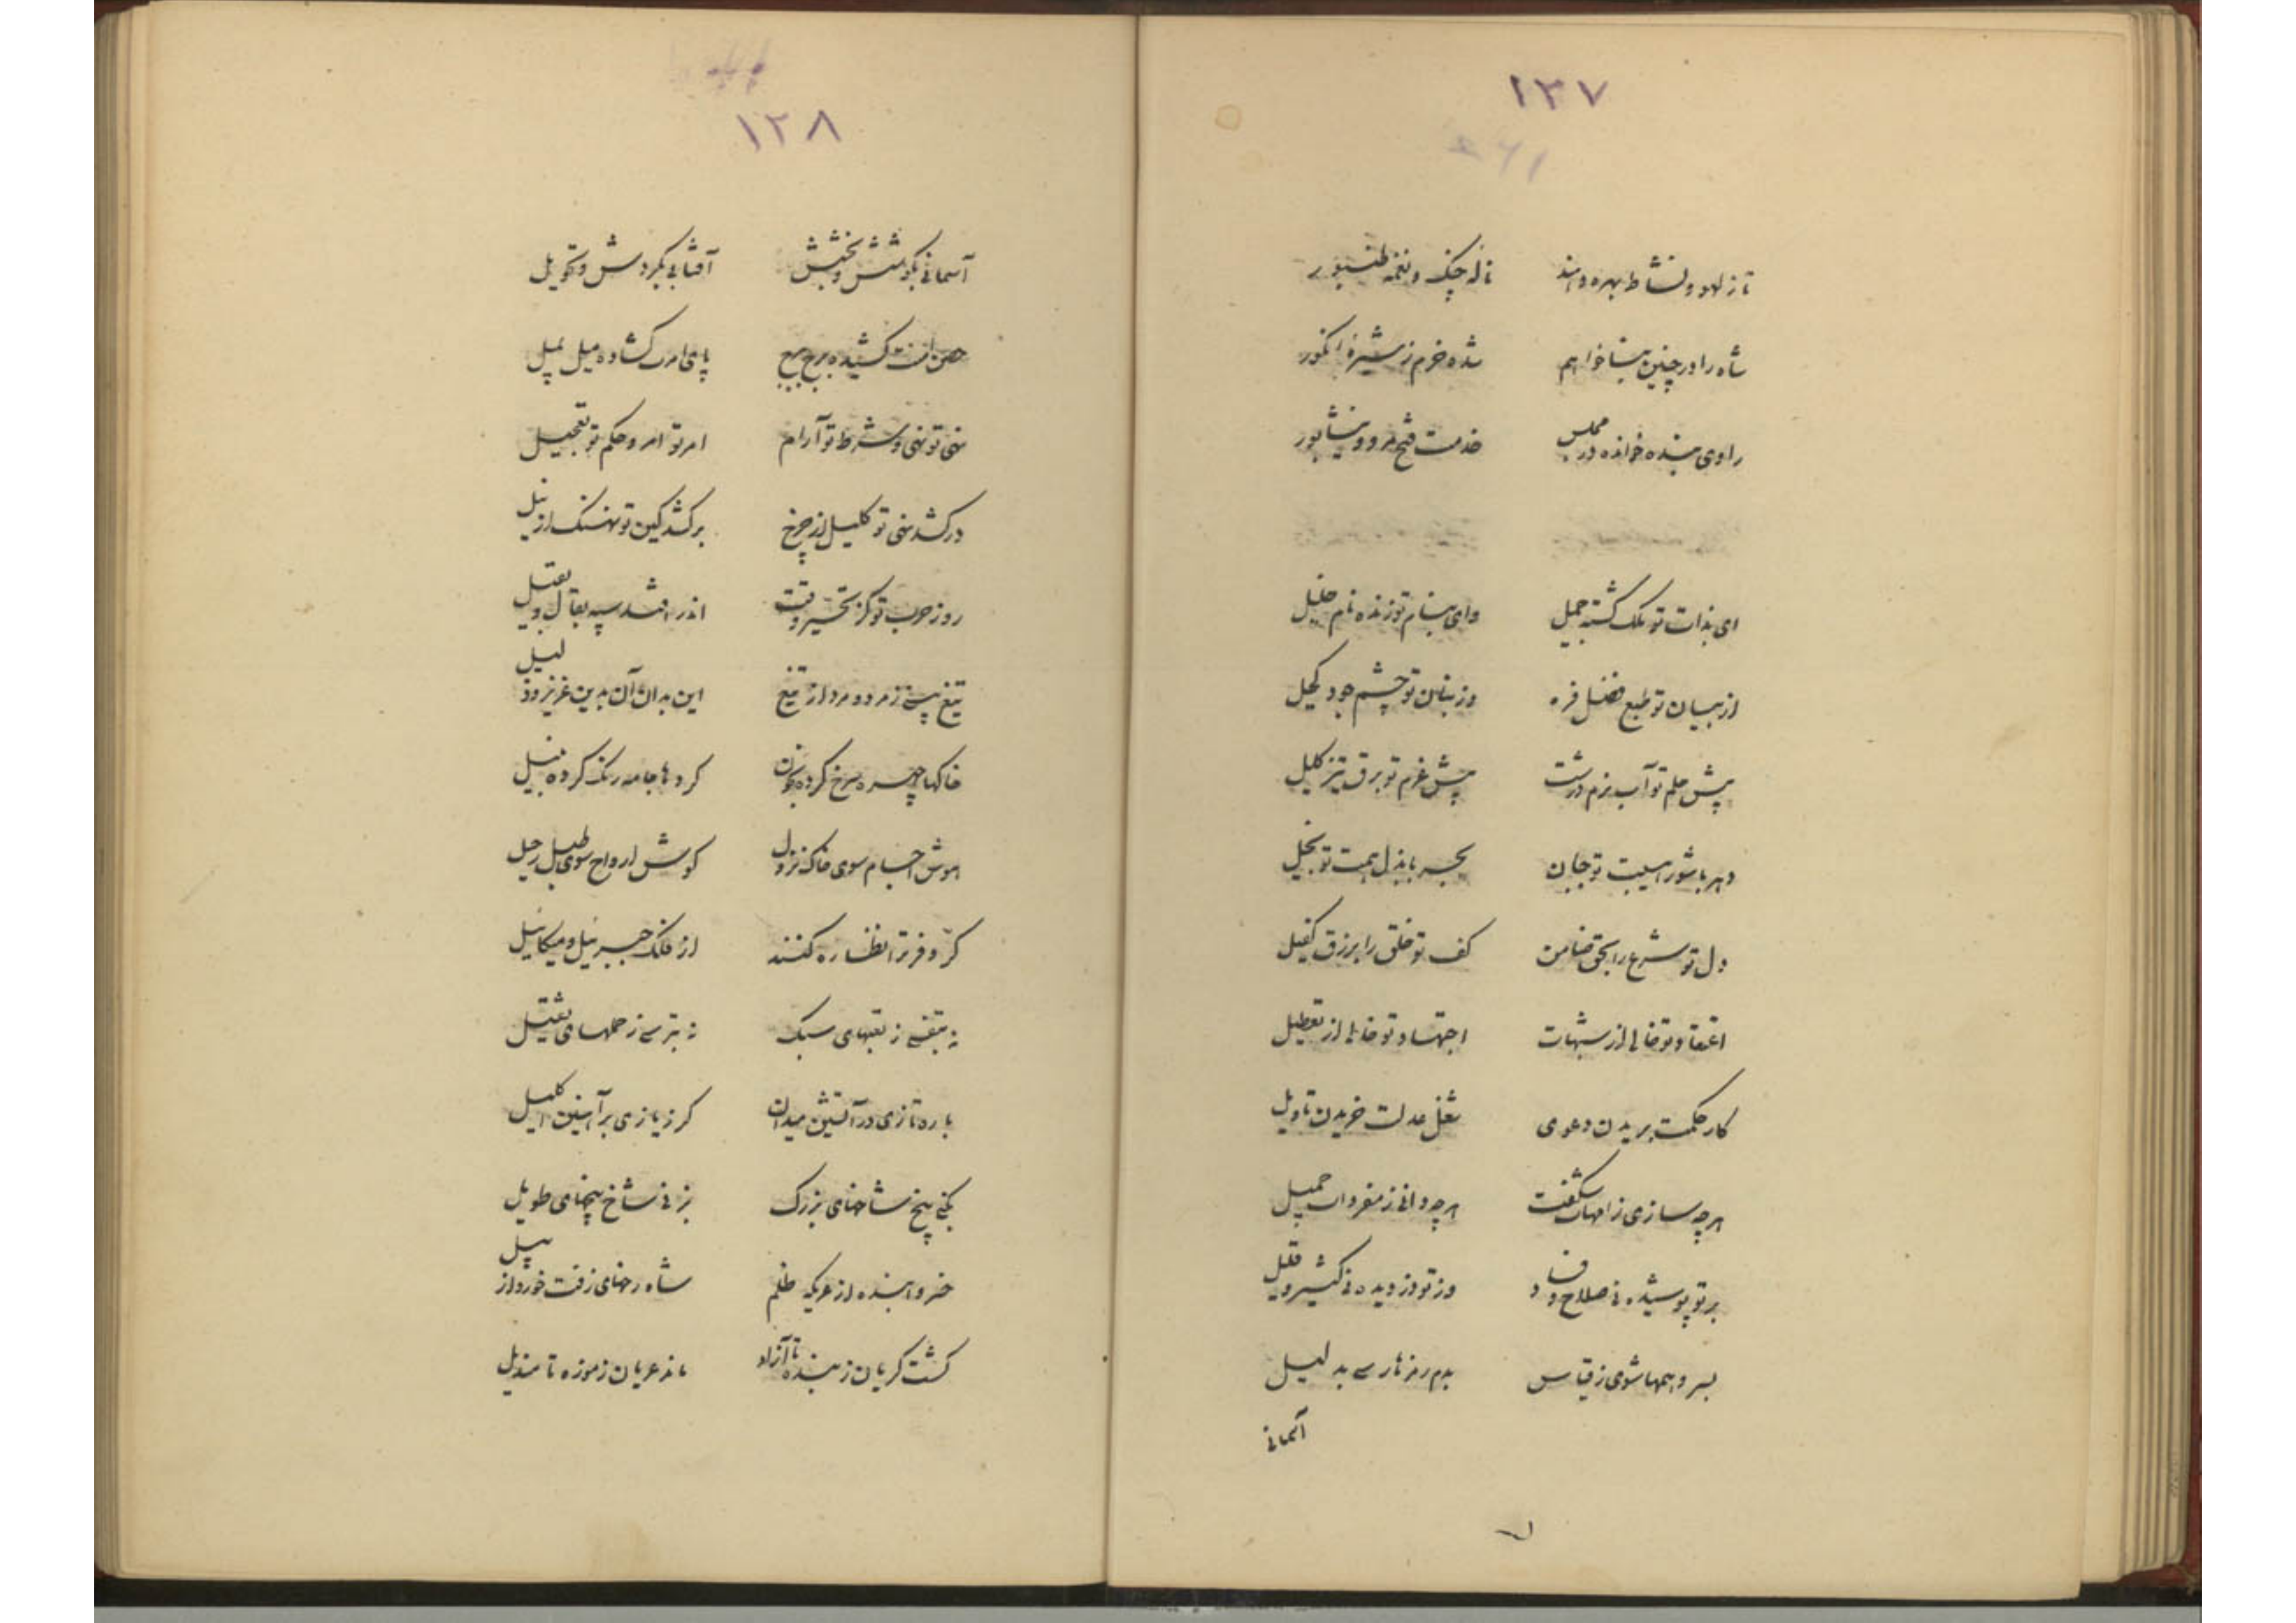 ۱۳۷
تا ز لهو و نشاط بهره دهند ناله چنگ و نغمه طنبور
شاه را در چنین بنا خواهم شده خرم ز شیره انگور
راوی بنده خوانده در مجلس خدمت فتح مرو و نیشابور
ای بذات تو ملک گشته جمیل وای بنام تو زنده نام خلیل
از بیان تو طبع فضل فره وز بنان تو چشم جود کحیل
پیش حلم تو آب نرم درشت پیش عزم تو برق تیز کلیل
دهر با شور هیبت تو جبان بحر با بذل همت تو بخیل
دل تو شرع را بحق ضامن کف تو خلق را برزق کفیل
اعتقاد تو خالی از شبهات اجتهاد تو خالی از تعطیل
کار حکمت بریدن دعوی شغل عدلت خریدن تاویل
هرچه سازی ز امهات شگفت هرچه دانی ز مفردات جمیل
بر تو پوشیده نی صلاح و فساد وز تو دزدیده نی کثیر و قلیل
بسر وهمها شوی ز قیاس بدم رمزها رسی بدلیل
آسمانی
۱۲۸
آسمانی بکوشش و بخشش آفتابی بگردش و تحویل
حصن امنت کشیده برج ببرج پای امرت گشاده میل بمیل
نهی تو نهی و شرط تو آرام امر تو امر و حکم تو تعجیل
درکشد نهی تو کلیل از چرخ برکشد کین تو نهنگ از نیل
روز حرب تو کز تحیر وقت اندر افتد سپه بقال و بقیل
تیغ پیسی ز مرد و مرد از تیغ این بدان آن بدین عزیز و ذلیل
خاکها چهره سرخ کرده بخون گردها جامه رنگ کرده بنیل
هوش اجسام سوی خاک نزول گوش ارواح سوی طبل رحیل
کر و فر ترا نظاره کنند از فلک جبرئیل و میکائیل
نه بتفسی ز تعبهای سبک نه بترسی ز حملهای ثقیل
باره تازی در آتشین میدان گرز یازی بر آهنین اکلیل
بکنی بیخ شاخهای بزرگ بزنی شاخ بیخهای طویل
خسروا بنده از عریکه ظلم شاه رخهای زفت خورد از پیل
گشت گریان ز بنده تا آزاد ماند عریان ز موزه تا مندیل